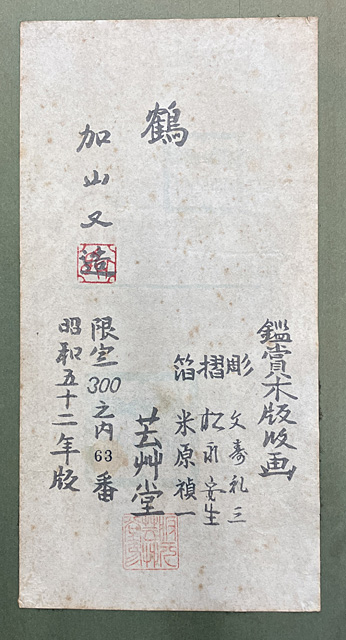 鶴
加山又造
鑑賞木版版画
彫 文寿礼三
摺 松永安生
箔 米原禎一
芸艸堂
限定300之内63番
昭和五十二年版